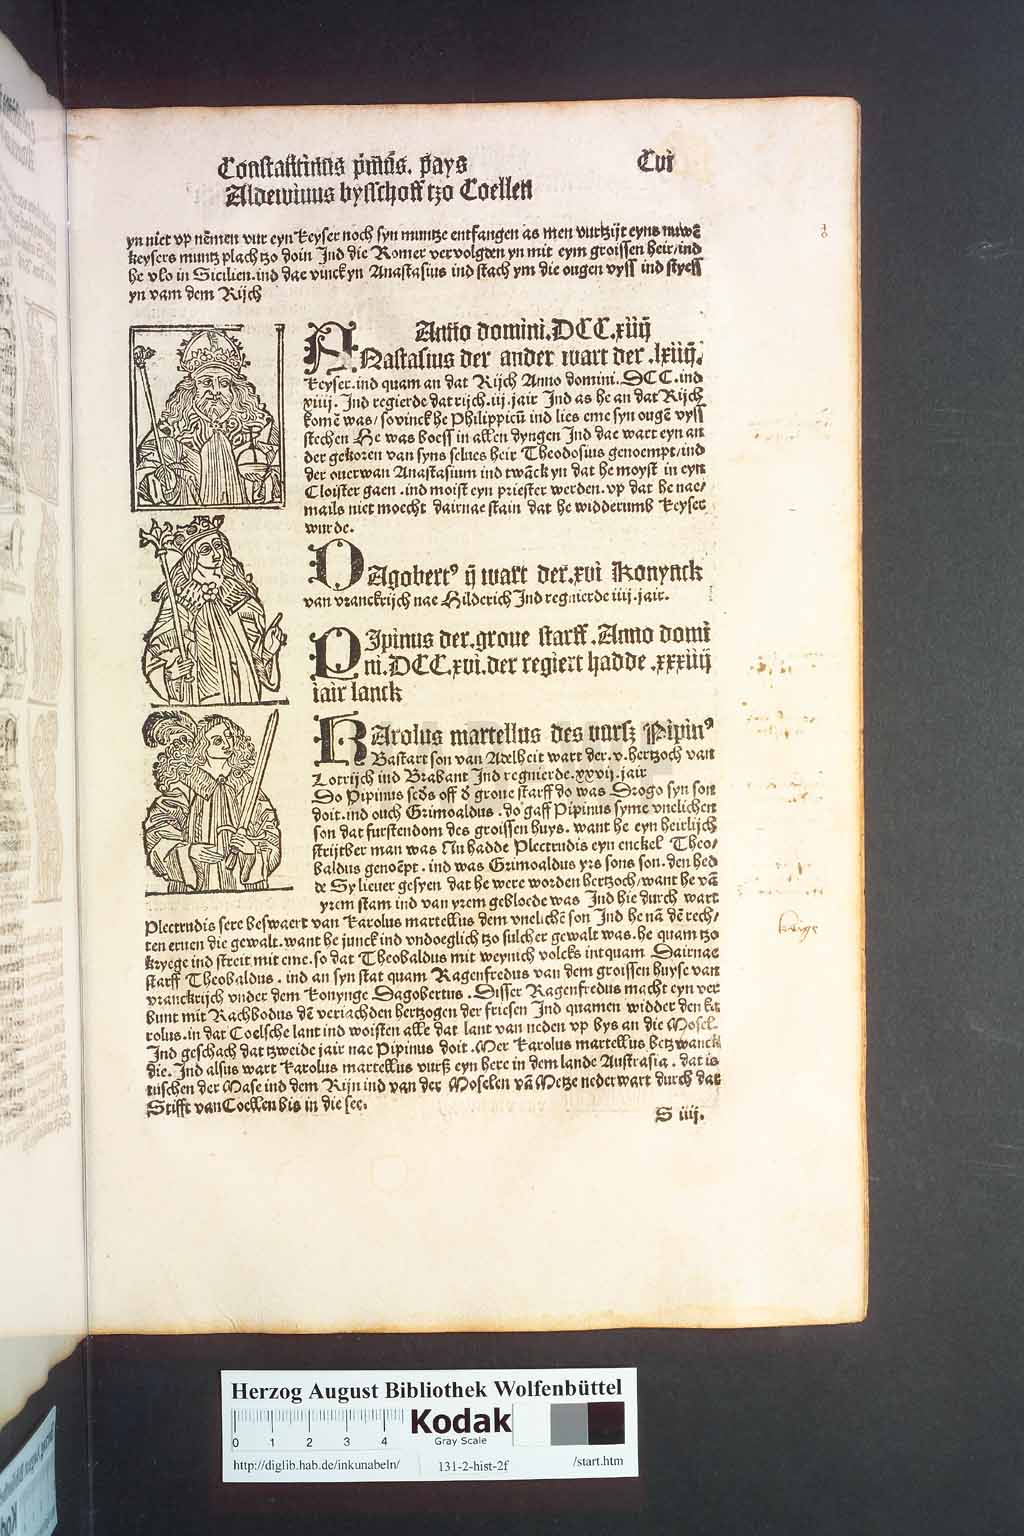 Constantinus prim9. pays
Cvi
Aldewinus bysschoff tzo Coellen
yn niet vp nēmen vur eyn keyser noch syn muntze entfangen as men vurtzijt eyns nuwē
keysers muntz plach tzo doin Ind die Romer vervolgden yn mit eym groissen heir/ind
he vlo in Sicilien.ind dae vinck yn Anastasius ind stach ym die ougen vyss ind styess
yn vam dem Rijch
Anno domini.DCC.xiiij
ANastasius der ander wart der .lxiiij.
keyser.ind quam an dat Rijch Anno domini.DCC.ind
xiiij. Ind regierde dat rijch.iij.jair Ind as he an dat Rijch
komē was/so vinck he Philippicū ind lies eme syn ougē vyss
stechen He was boess in allen dyngen Ind dae wart eyn an
der gekozen van syns selues heir Theodosius genoempt/ind
der ouerwan Anastasium ind twāck yn dat he moyst in eyn
Cloister gaen .ind moist eyn priester werden.vp dat he nae/
mails niet moecht dairnae stain dat he widderumb keyser
wurde.
DAgobert9 ij wart der.xvi Konynck
van vranckrijch nae Hilderich Ind regnierde iiij.jair.
PIpinus der.groue starff.Anno domi
ni.DCC.xvi.der regiert hadde .xxxiiij
iair lanck
KArolus martellus des vursz Pipin9
Bastart son van Adelheit wart der.v.hertzoch van
Lotrijch ind Brabant Ind regnierde.xxvij.jair
Do Pipinus secds off d groue starff do was Drogo syn son
doit.ind ouch Grimoaldus.do gaff Pipinus syme vnelichen
son dat furstendom des groissen huys. want he eyn heirlijch
strijtber man was Nu hadde Plectrudis eyn enckel Theo/
baldus genoēpt.ind was Grimoaldus yrs sons son.den hed
de Sy lieuer gesyen dat he were worden hertzoch/want he vā
yrem stam ind van yrem gebloede was Ind hie durch wart
Plectrudis sere beswaert van Karolus martellus dem vnelichē son Ind he nā dē rech/
ten eruen die gewalt.want he junck ind vndoeglich tzo sulcher gewalt was.he quam tzo
kryege ind streit mit eme.so dat Theobaldus mit weynich volcks intquam Dairnae
starff Theobaldus. ind an syn stat quam Ragenfredus van dem groissen huyse van
vranckrijch vnder dem Konynge Dagobertus. Disser Ragenfredus macht eyn ver
bunt mit Rachbodus dē veriachden hertzogen der friesen Ind quamen widder den ka
rolus.in dat Coelsche lant ind woisten alle dat lant van neden vp bys an die Mosel.
Ind geschach dat tzweide jair nae Pipinus doit.Mer Karolus martellus betzwanck
die. Ind alsus wart Karolus martellus vursz eyn here in dem lande Austrasia. dat is
tuschen der Mase ind dem Rijn ind van der Moselen vā Metze nederwart durch dat
Stifft van Coellen bis in die see.
S iiij.
Herzog August Bibliothek Wolfenbüttel
0 1 2 3 4
Kodak
Gray Scale
http://diglib.hab.de/inkunabeln/ 131-2-hist-2f /start.htm